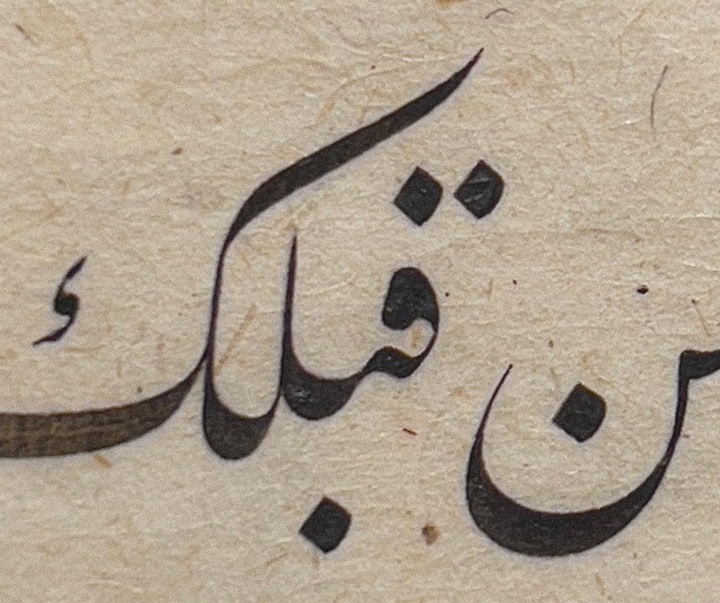 من قبلك